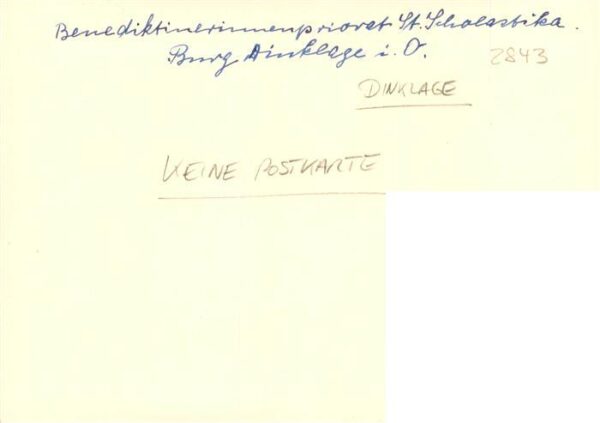 Benediktinerinnenpriorat St. Scholastika.
Burg Dinklage i. O.
2843
DINKLAGE
KEINE POSTKARTE